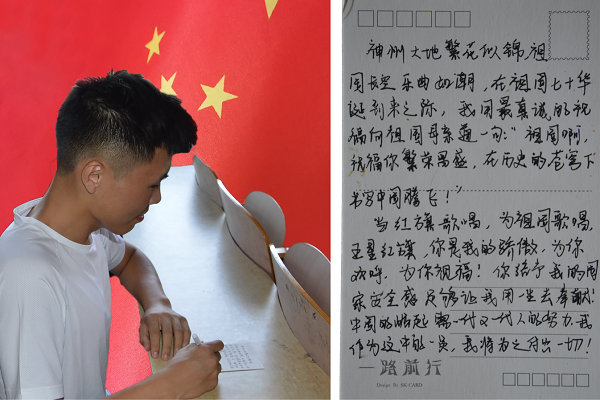 神州大地繁花似锦,祖
国长空乐曲如潮,在祖国七十华
诞到来之际,我用最真诚的祝
福向祖国母亲道一句:"祖国啊,
祝福你繁荣昌盛,在历史的苍穹下
书写中国腾飞!"
当红旗歌唱,为祖国歌唱,
五星红旗,你是我的骄傲,为你
欢呼,为你祝福!你给予我的国
家安全感足够让我用一生去奉献!
中国的崛起需一代又一代人的努力,我
作为这中的一员,我将为之付出一切!
一路前行
Design By SK/CARD